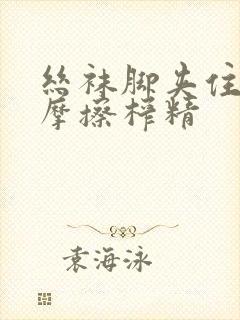 丝袜脚夹住
摩擦榨精
袁海泳